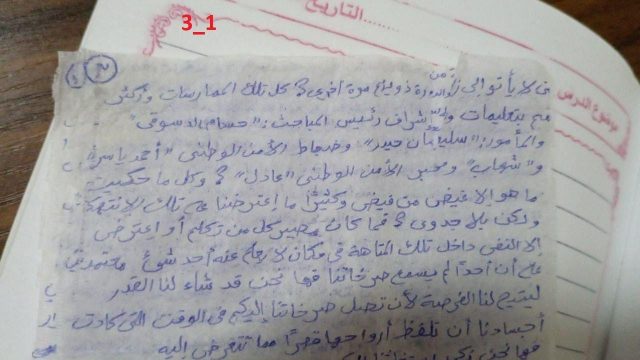 3_1
التاريخ
موضوع الدرس
٣
حتى لا يأتوا إلى زيارة ذويهم مرة أخرى؟ كل تلك الممارسات وأكثر
تتم بتعليمات وإشراف رئيس المباحث: "حسام الدسوقي"
والمأمور: "سليمان حيدر" وضباط الأمن الوطني "أحمد ياسر"
و"شهاب" ومخبر الأمن الوطني "عادل"؟ وكل ما حكيت
ما هو إلا غيض من فيض وكثيرًا ما اعترضنا على تلك الانتهاكات
ولكن بلا جدوى؟ فما كان مصير كل من تكلم أو اعترض
إلا النفي داخل تلك المتاهة في مكان لا يعلم عنه أحد شيئ معتمدين
على أن أحدًا لم يسمع صرخاتنا فها نحن قد شاء لنا القدر
ليتيح لنا الفرصة لأن تصل صرخاتنا إليكم في الوقت التي كادت
أجسادنا أن تلفظ أرواحها قهرًا مما تتعرض إليه
فها نحن